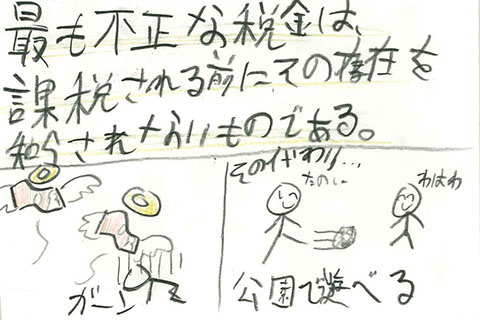 最も不正な税金は、
課税される前にその存在を
知らされないものである。
ガーン
その代わり…
たのし
わはわ
公園で遊べる